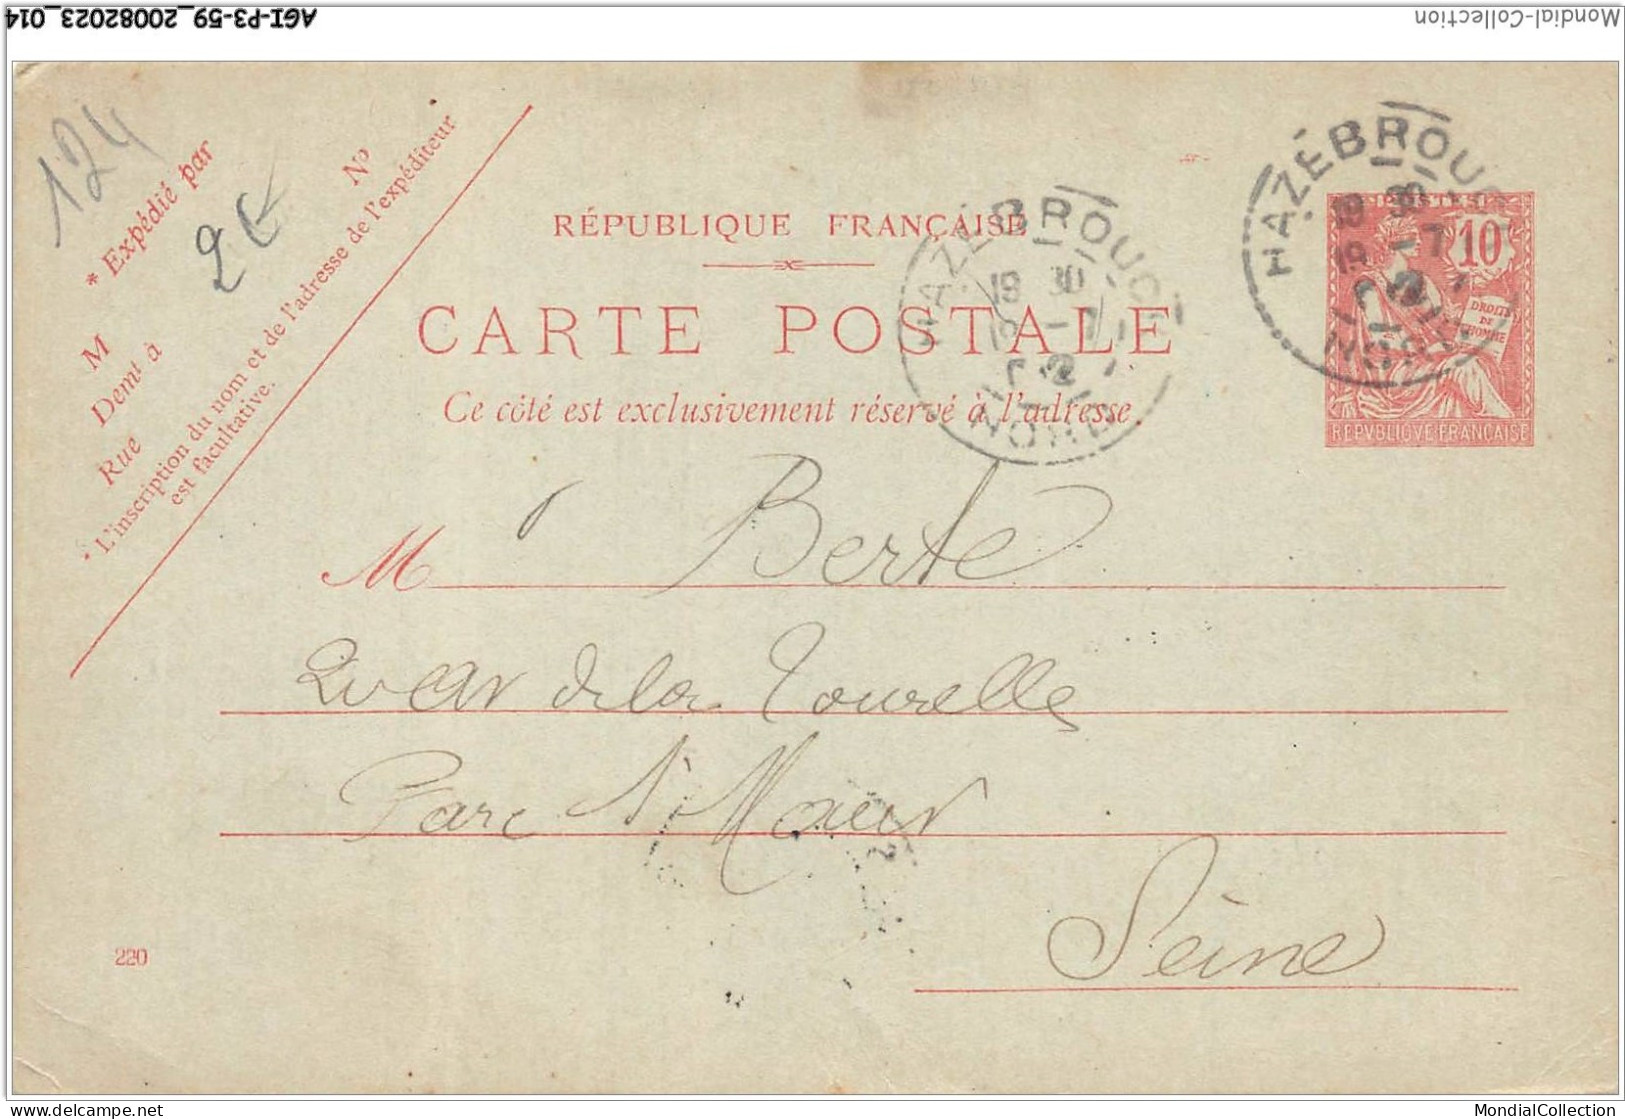 AGI-P3-59_20082023_014
Mondial-Collection
124
2€
* Expédié par
No
M
Demt à
Rue
* L'inscription du nom et de l'adresse de l'expéditeur
est facultative.
RÉPUBLIQUE FRANÇAISE
CARTE POSTALE
Ce côté est exclusivement réservé à l'adresse.
HAZEBROUCK
19 30
19 -7
02
NORD
HAZEBROUCK
19 30
19 -7
02
NORD
POSTES
10
DROITS
DE
L'HOMME
REPVBLIQVE FRANÇAISE
M Berte
av de la Tourelle
Parc St Maur
Seine
220
MondialCollection